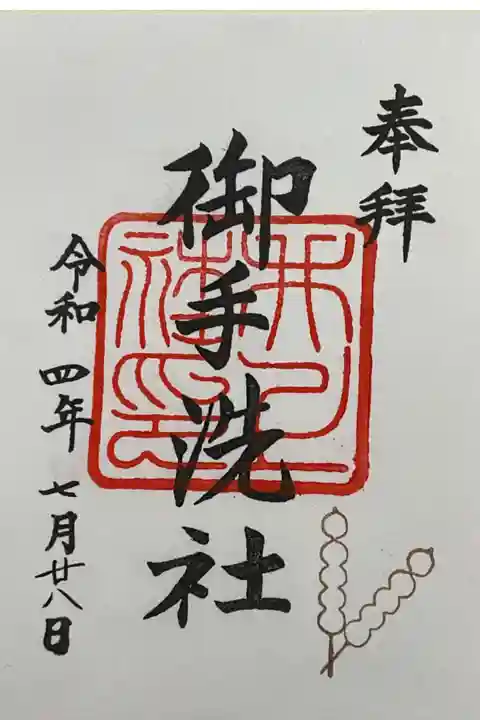 奉拝
御手洗社
令和四年七月廿八日